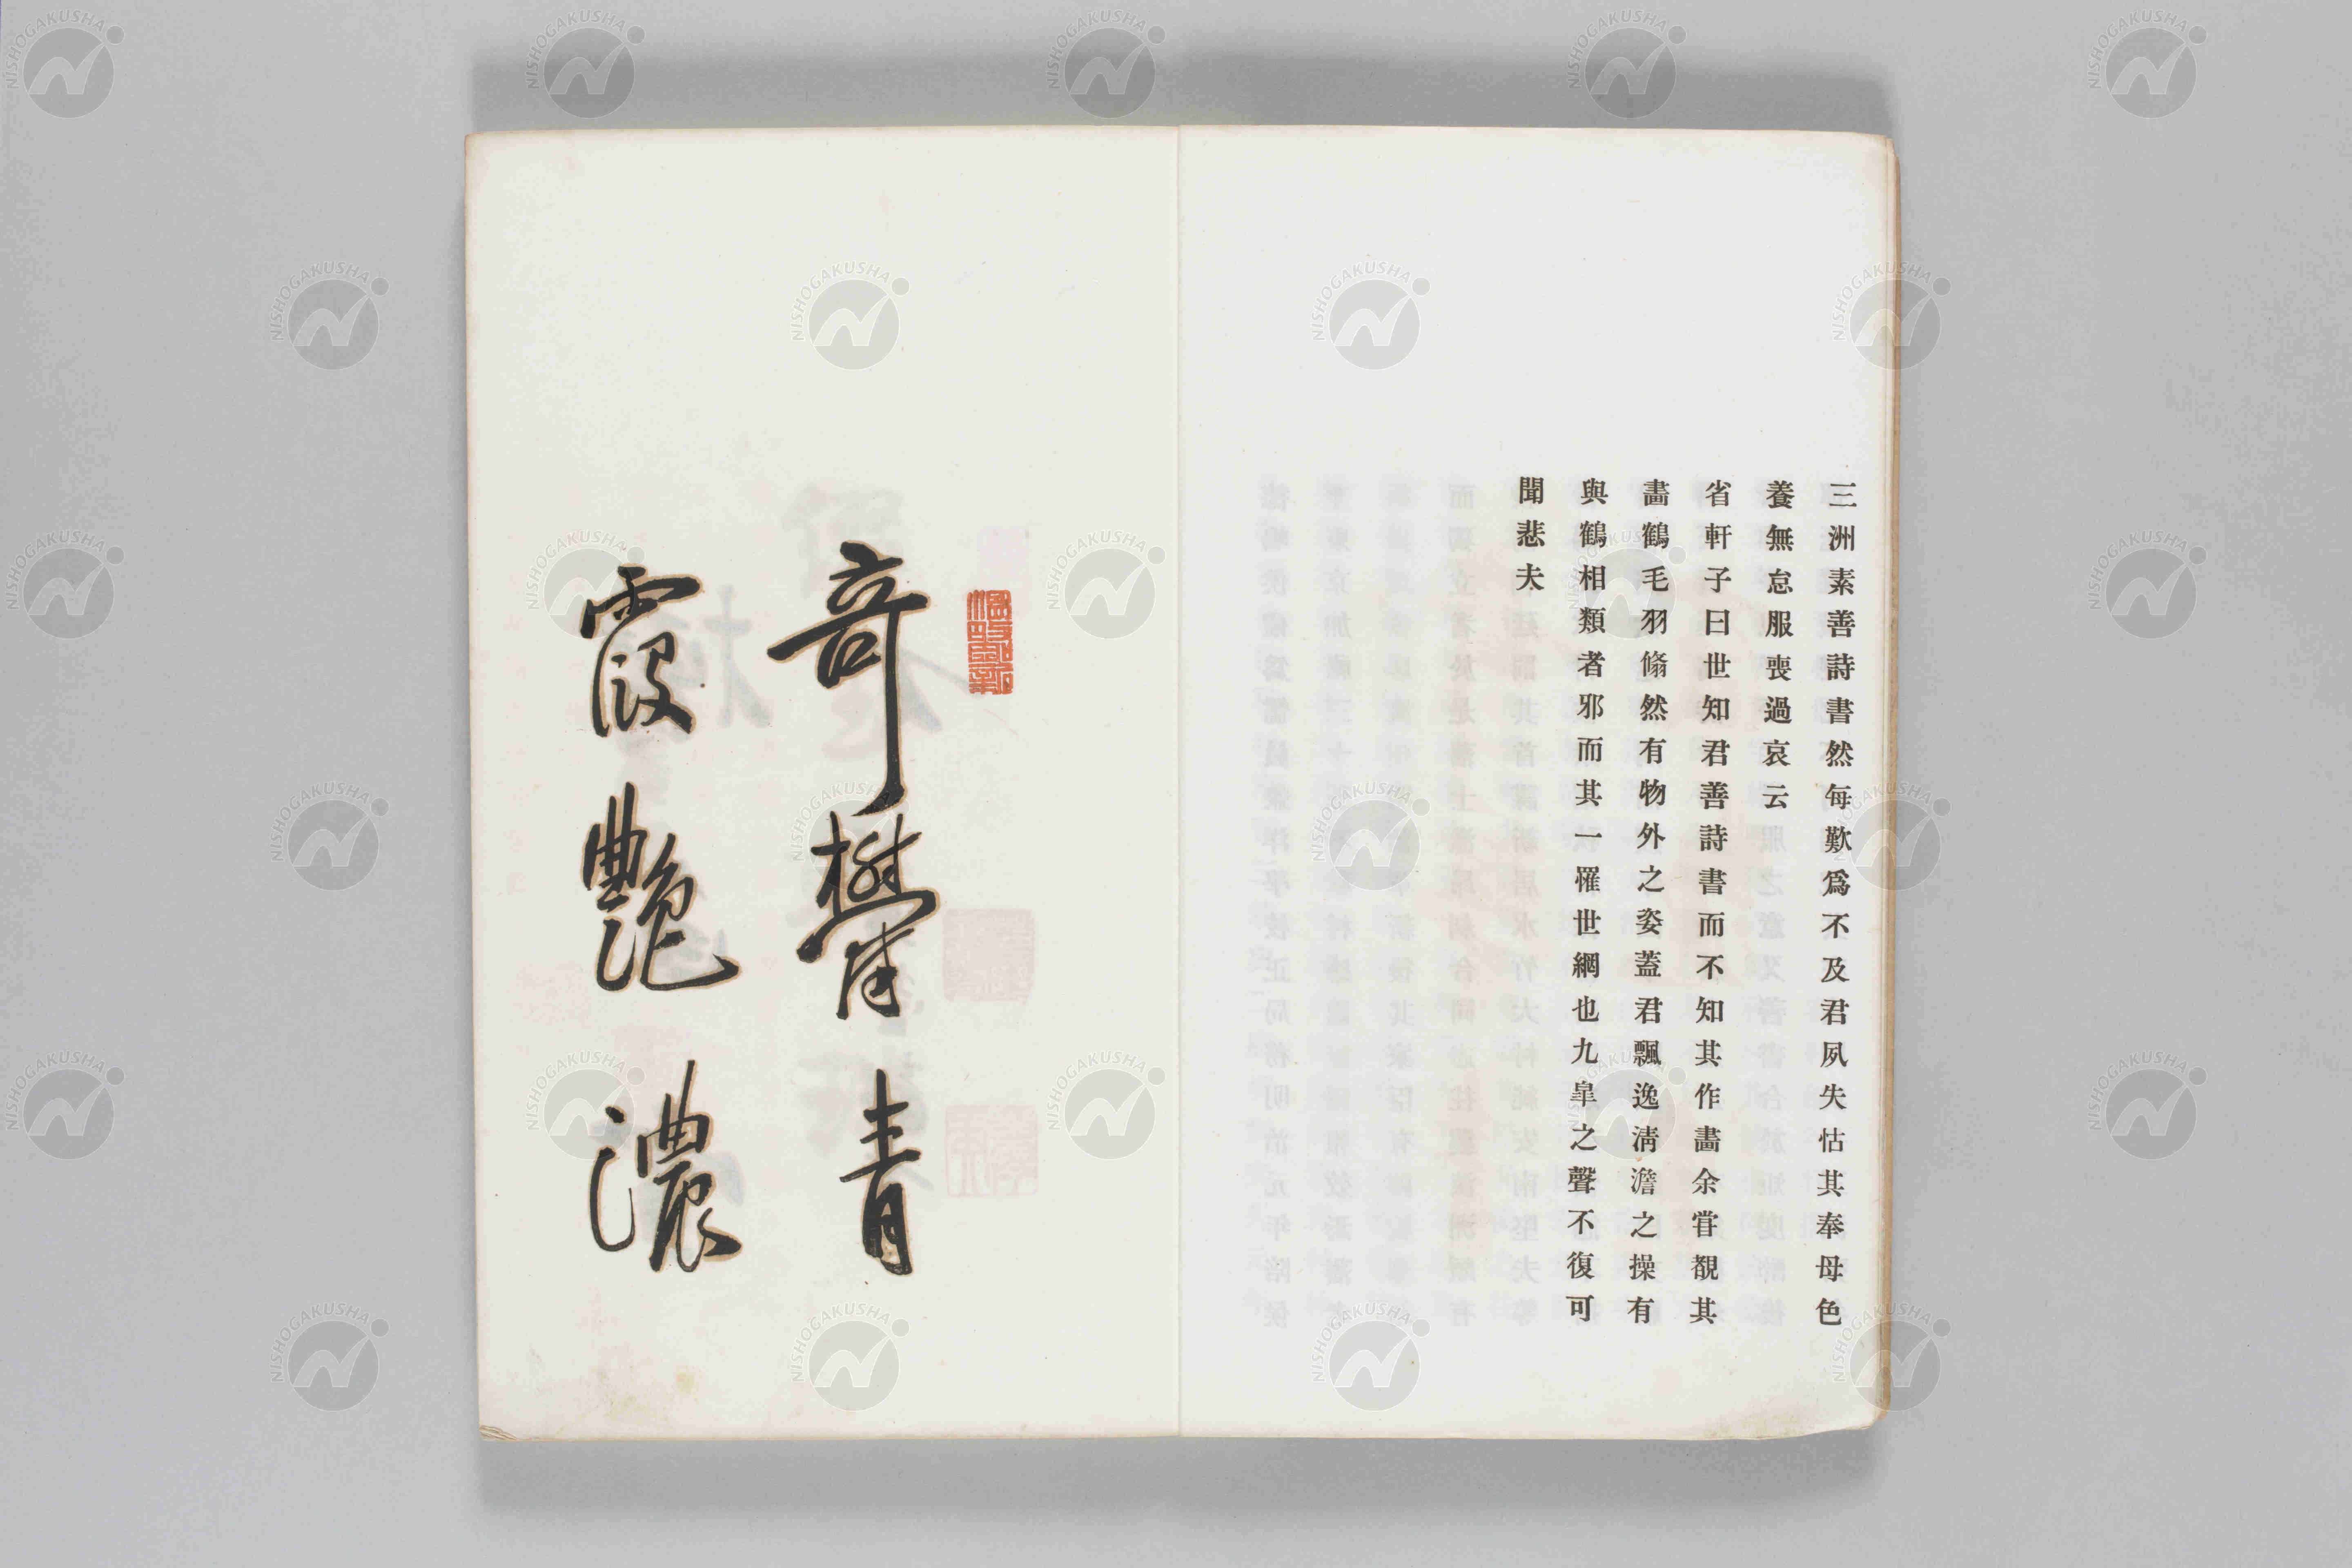 三洲素善詩書然每歎爲不及君夙失怙其奉母色
養無怠服喪過哀云
省軒子曰世知君善詩書而不知其作畵余甞覩其
畵鶴毛羽翛然有物外之姿蓋君飄逸淸澹之操有
與鶴相類者邪而其一罹世網也九皐之聲不復可
聞悲夫
奇礬青
霞艷濃
NISHOGAKUSHA